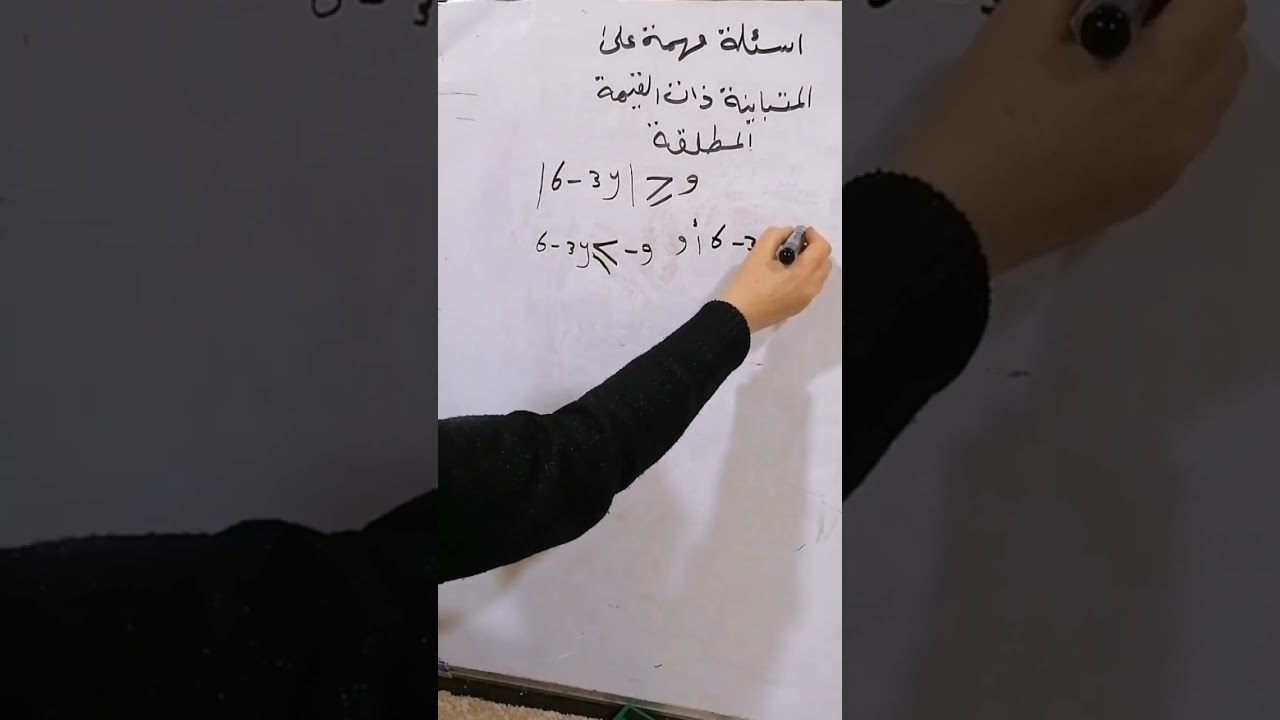 اسئلة مهمة على
المتباينة ذات القيمة
المطلقة
|6-3y| ≥ 9
6-3y ≤ -9 أو 6-3